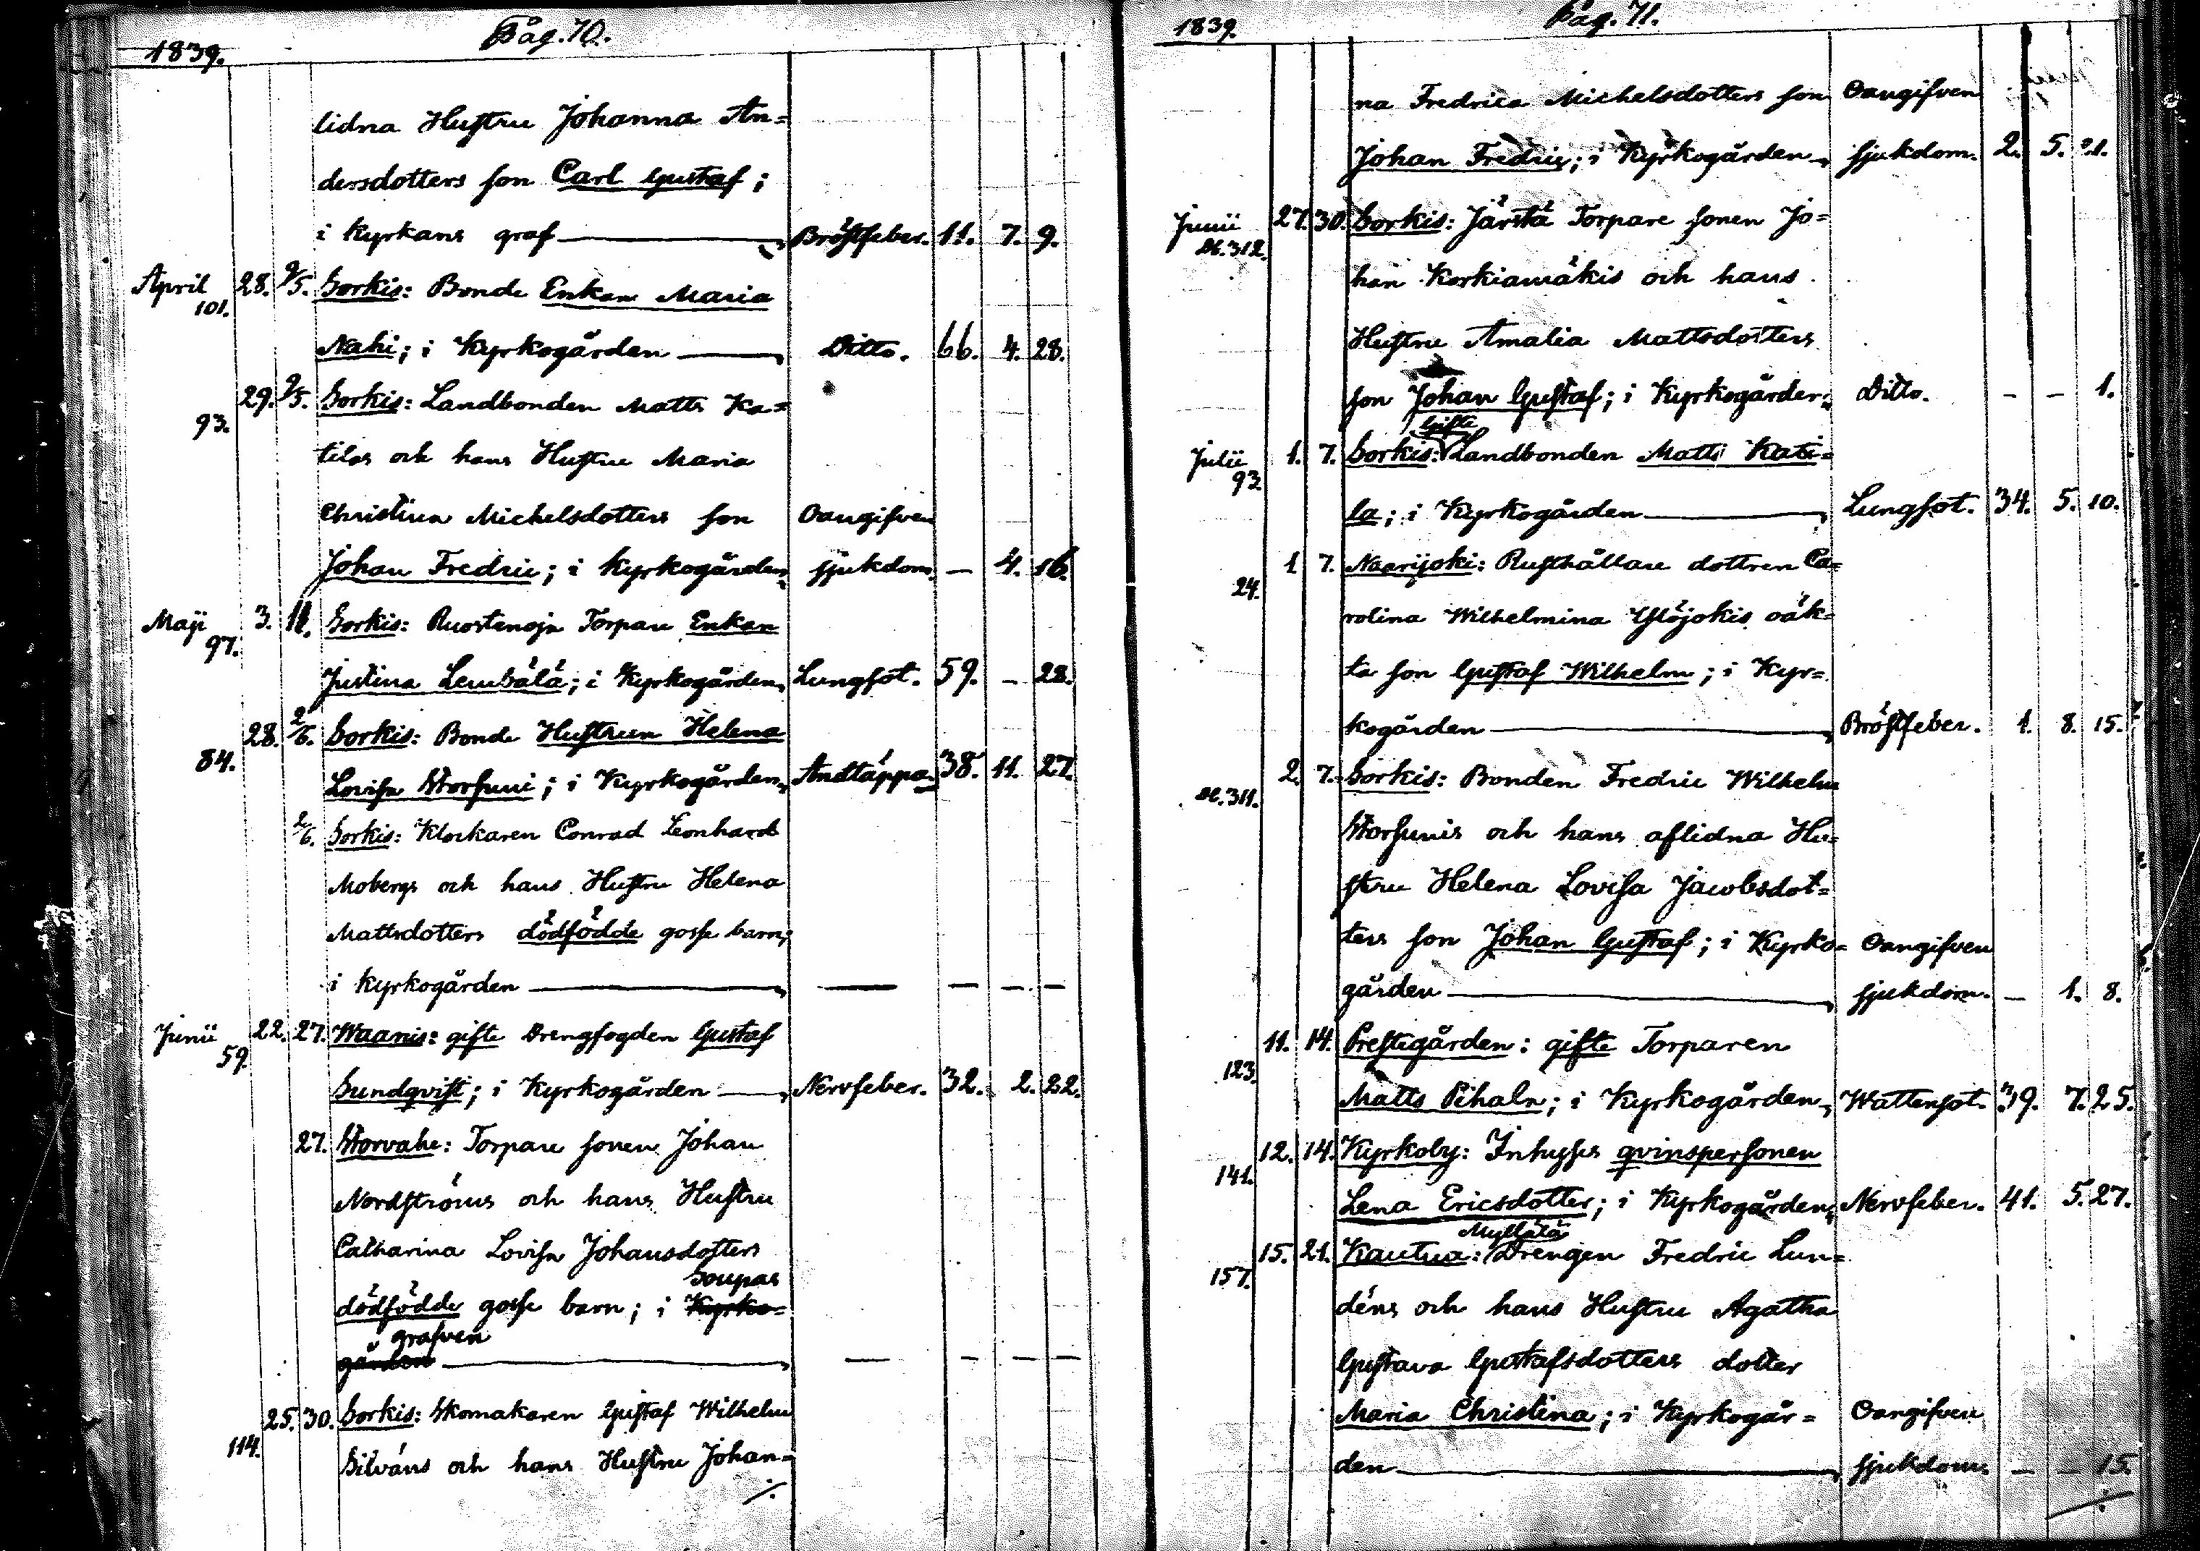 Påg. 70.
1839.
lidna Hustru Johanna An=
dersdotters son Carl Gustaf;
i kyrkans graf — Bröstfeber. 11. 7. 9.
April 28. 9/5. Sorkis: Bonde Enkan Maria
101.
Nahi; i Kyrkogården — Ditto. 66. 4. 28.
29. 9/5. Sorkis: Landbonden Matts Ka=
93.
tilas och hans Hustru Maria
Christina Michelsdotters son Oangifven
Johan Fredric; i kyrkogården, sjukdom. — 4. 16.
Maji 3. 11. Sorkis: Ruostenoja Torpare Enkan
97.
Justina Leusälä; i Kyrkogården, Lungsot. 59. — 28.
28. 2/6. Sorkis: Bonde Hustrun Helena
84.
Lovisa Storsuni; i Kyrkogården, Andtäppa. 38. 11. 27.
2/6. Sorkis: Klockaren Conrad Leonhard
Mobergs och hans Hustru Helena
Mattsdotters dödfödde gosse barn;
i kyrkogården — — — — —
Junii 22. 27. Waanis: gifte Drengfogden Gustaf
59.
Sundqvist; i Kyrkogården — Nervfeber. 32. 2. 22.
27. Storvahe: Torpare sonen Johan
Nordströms och hans Hustru
Catharina Lovisa Johansdotters
Soupas
dödfödde gosse barn; i Kyrko=
grafven
gården — — — — —
25. 30. Sorkis: Skomakaren Gustaf Wilhelm
114.
Silváns och hans Hustru Johan=
./.
Påg. 71.
1839.
na Fredrica Michelsdotters son Oangifven
Johan Fredric; i Kyrkogården, sjukdom. 2. 5. 21.
Junii 27. 30. Sorkis: Järstä Torpare sonen Jo=
N. 312.
han Korkiamäkis och hans
Hustru Amalia Mattsdotters
son Johan Gustaf; i Kyrkogården, Ditto. — — 1.
gifte
Julii 1. 7. Sorkis: Landbonden Matts Kati=
93.
la; i Kyrkogården — Lungsot. 34. 5. 10.
1. 7. Naarijoki: Rusthållare dottren Ca=
24.
rolina Wilhelmina Ylöjokis oäk=
ta son Gustaf Wilhelm; i Kyr=
kogården — Bröstfeber. 1. 8. 15.
2. 7. Sorkis: Bonden Fredric Wilhelm
N. 311.
Storsunis och hans aflidna Hu=
stru Helena Lovisa Jacobsdot=
ters son Johan Gustaf; i Kyrko= Oangifven
gården — sjukdom. — 1. 8.
11. 14. Prestegården: gifte Torparen
123.
Matts Pihala; i Kyrkogården, Wattensot. 39. 7. 25.
12. 14. Kyrkoby: Inhyses qvinspersonen
141.
Lena Ericsdotter; i Kyrkogården, Nervfeber. 41. 5. 27.
Myllälä
15. 21. Kautua: Drengen Fredric Lun=
157.
déns och hans Hustru Agatha
Gustava Gustafsdotters dotter
Maria Christina; i Kyrkogår= Oangifven
den — sjukdom. — — 15.